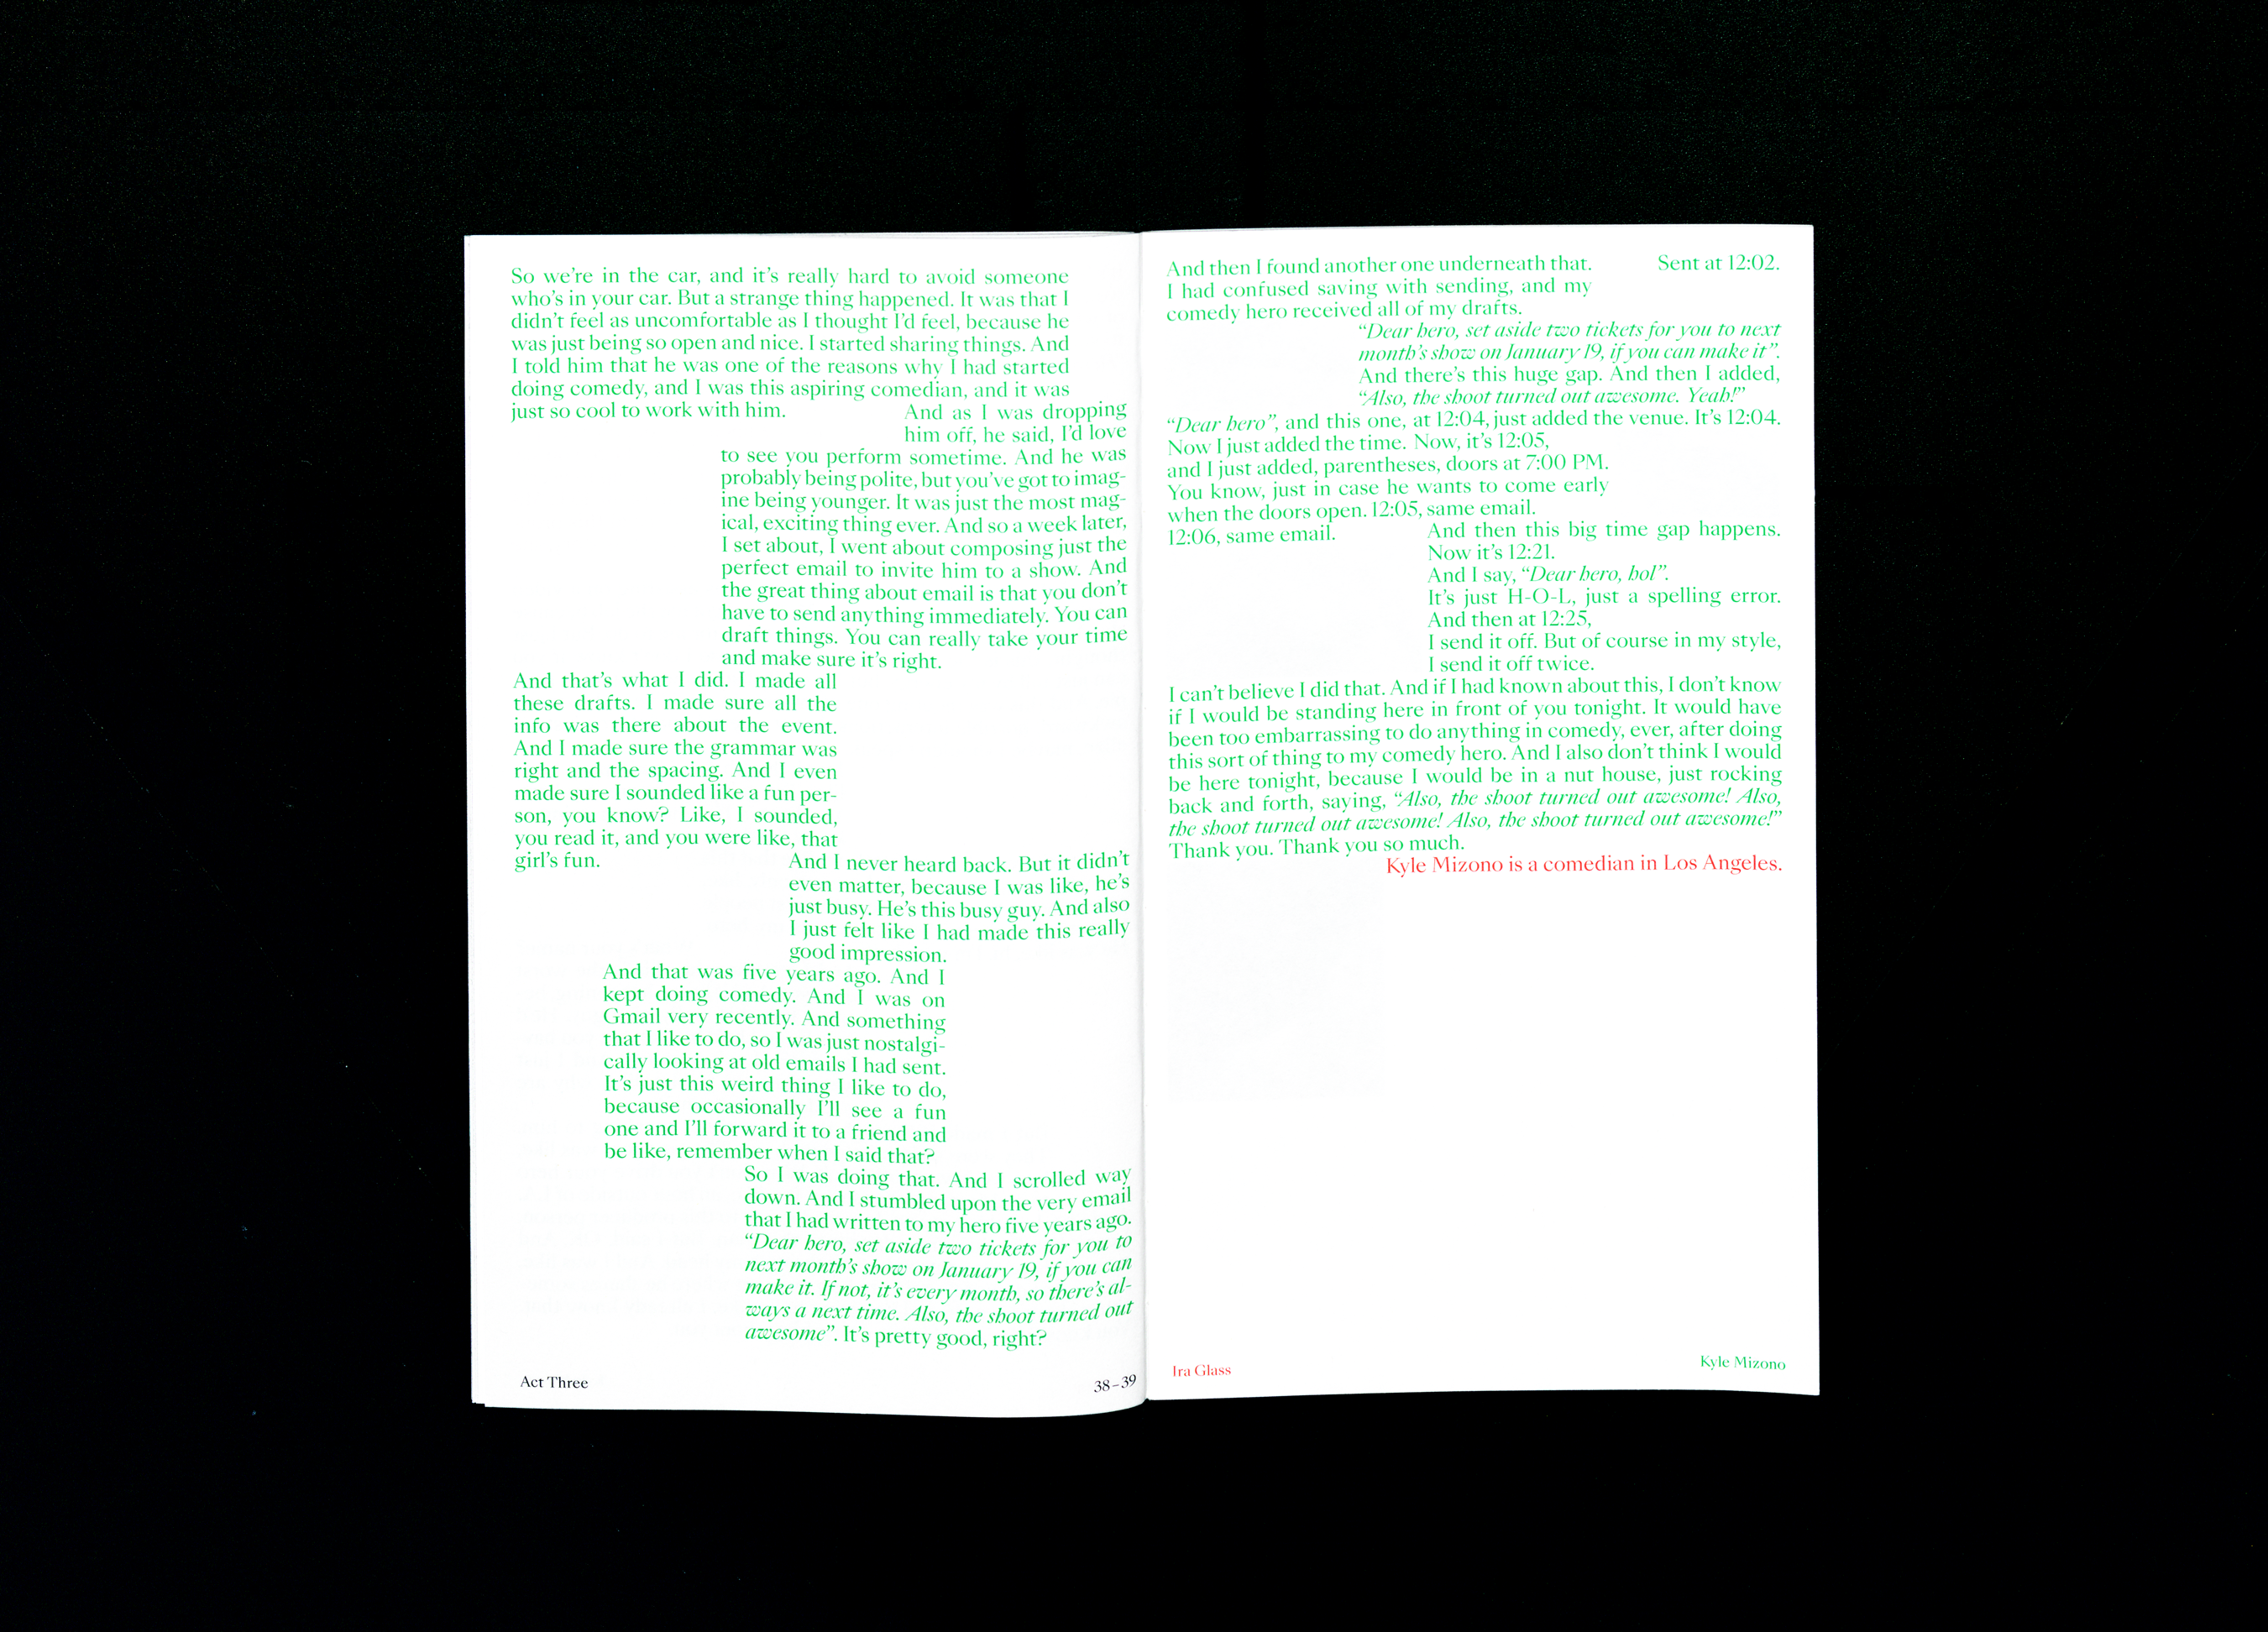 So we're in the car, and it's really hard to avoid someone
who's in your car. But a strange thing happened. It was that I
didn't feel as uncomfortable as I thought I'd feel, because he
was just being so open and nice. I started sharing things. And
I told him that he was one of the reasons why I had started
doing comedy, and I was this aspiring comedian, and it was
just so cool to work with him.
And as I was dropping
him off, he said, I'd love
to see you perform sometime. And he was
probably being polite, but you've got to imag-
ine being younger. It was just the most mag-
ical, exciting thing ever. And so a week later,
I set about, I went about composing just the
perfect email to invite him to a show. And
the great thing about email is that you don't
have to send anything immediately. You can
draft things. You can really take your time
and make sure it's right.
And that's what I did. I made all
these drafts. I made sure all the
info was there about the event.
And I made sure the grammar was
right and the spacing. And I even
made sure I sounded like a fun per-
son, you know? Like, I sounded,
you read it, and you were like, that
girl's fun.
And I never heard back. But it didn't
even matter, because I was like, he's
just busy. He's this busy guy. And also
I just felt like I had made this really
good impression.
And that was five years ago. And I
kept doing comedy. And I was on
Gmail very recently. And something
that I like to do, so I was just nostalgi-
cally looking at old emails I had sent.
It's just this weird thing I like to do,
because occasionally I'll see a fun
one and I'll forward it to a friend and
be like, remember when I said that?
So I was doing that. And I scrolled way
down. And I stumbled upon the very email
that I had written to my hero five years ago.
“Dear hero, set aside two tickets for you to
next month's show on January 19, if you can
make it. If not, it's every month, so there's al-
ways a next time. Also, the shoot turned out
awesome”. It's pretty good, right?
Act Three
38–39
And then I found another one underneath that.
I had confused saving with sending, and my
comedy hero received all of my drafts.
Sent at 12:02.
“Dear hero, set aside two tickets for you to next
month's show on January 19, if you can make it”.
And there's this huge gap. And then I added,
“Also, the shoot turned out awesome. Yeah!”
“Dear hero”, and this one, at 12:04, just added the venue. It's 12:04.
Now I just added the time. Now, it's 12:05,
and I just added, parentheses, doors at 7:00 PM.
You know, just in case he wants to come early
when the doors open. 12:05, same email.
12:06, same email.
And then this big time gap happens.
Now it's 12:21.
And I say, “Dear hero, hol”.
It's just H-O-L, just a spelling error.
And then at 12:25,
I send it off. But of course in my style,
I send it off twice.
I can't believe I did that. And if I had known about this, I don't know
if I would be standing here in front of you tonight. It would have
been too embarrassing to do anything in comedy, ever, after doing
this sort of thing to my comedy hero. And I also don't think I would
be here tonight, because I would be in a nut house, just rocking
back and forth, saying, “Also, the shoot turned out awesome! Also,
the shoot turned out awesome! Also, the shoot turned out awesome!”
Thank you. Thank you so much.
Kyle Mizono is a comedian in Los Angeles.
Ira Glass
Kyle Mizono